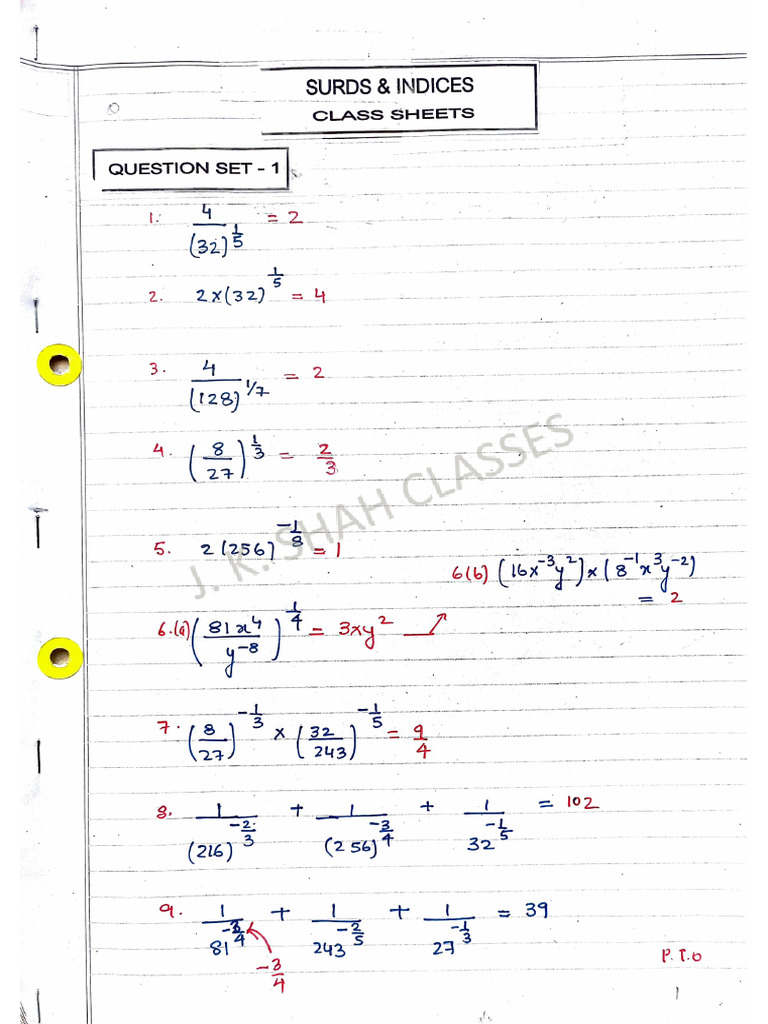 SURDS & INDICES
CLASS SHEETS
QUESTION SET - 1
1. 4/(32)^(1/5) = 2
2. 2×(32)^(1/5) = 4
3. 4/(128)^(1/7) = 2
4. (8/27)^(1/3) = 2/3
5. 2(256)^(-1/8) = 1
6(b) (16x^-3y^2)×(8^-1x^3y^-2)
= 2
6.(a) (81x^4/y^-8)^(1/4) = 3xy^2
7. (8/27)^(-1/3) × (32/243)^(-1/5) = 9/4
8. 1/(216)^(-2/3) + 1/(256)^(-3/4) + 1/32^(-1/5) = 102
9. 1/81^(-3/4) + 1/243^(-2/5) + 1/27^(-1/3) = 39
-3/4
P.T.O
1
J. K. SHAH CLASSES